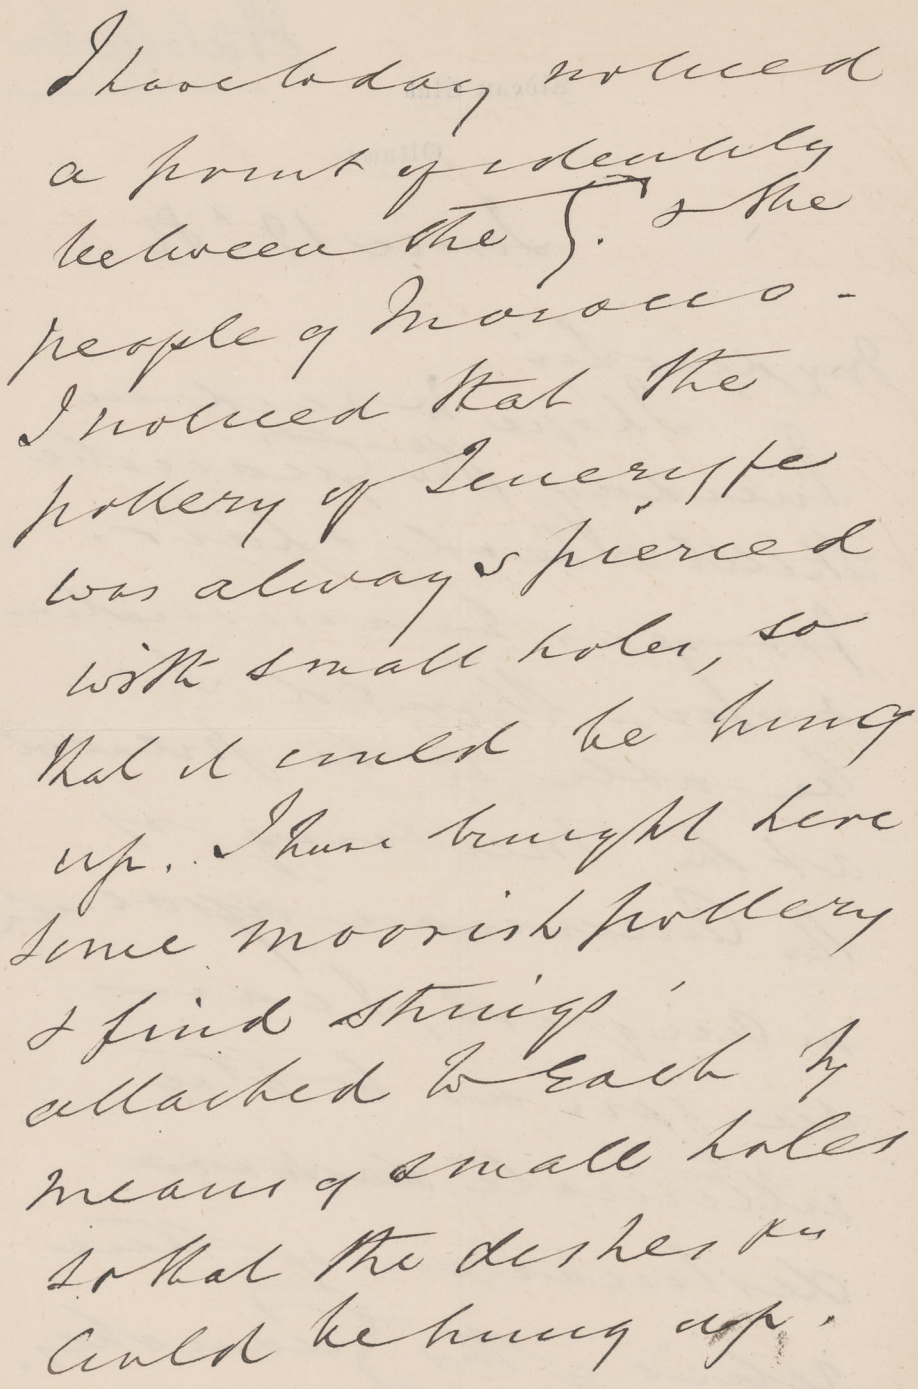 I have today noticed
a point of identity
between the G. & the
people of Morocco -
I noticed that the
pottery of Teneryffe
was always pierced
with small holes, so
that it could be hung
up. I have brought here
some moorish pottery
& find strings
attached to Each by
means of small holes
so that the dishes &c
Could be hung up.